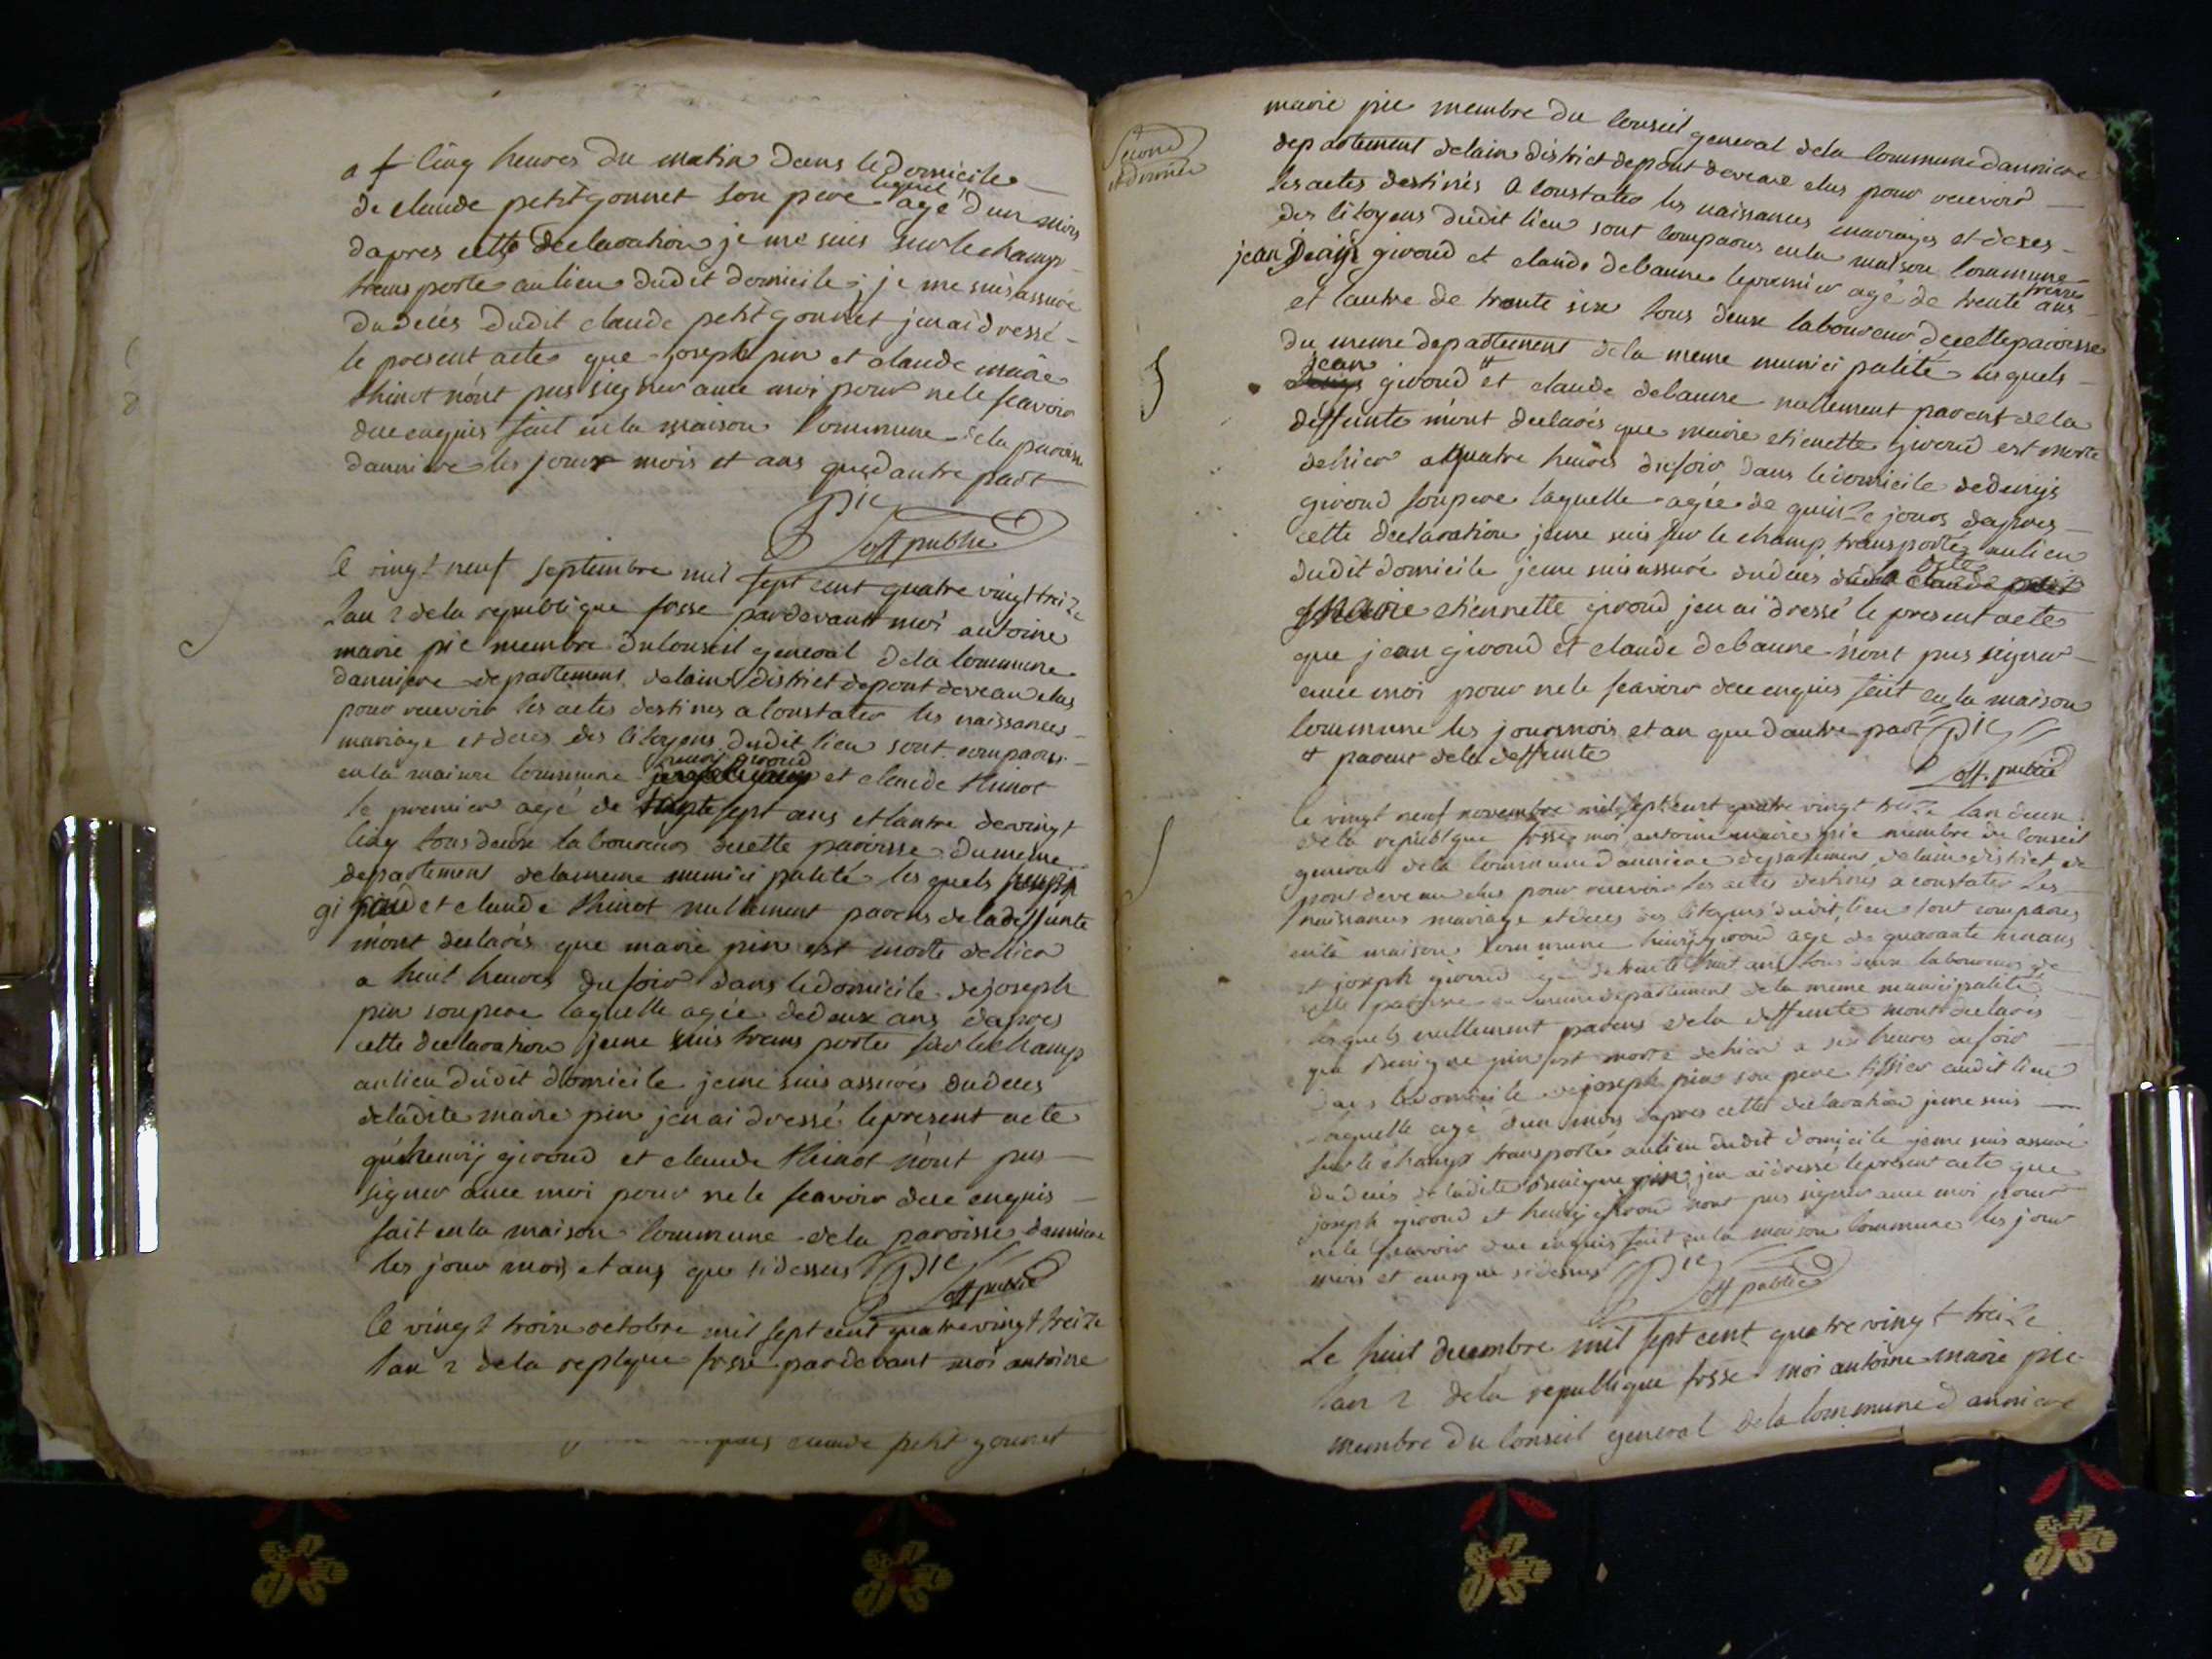 a cinq heures du matin dans le domicile
de claude petit gonnet son pere lequel agé d'un mois
dapres cette declaration je me suis sur le champ
transporté au lieu dudit domicile ; je me suis assuré
du decés dudit claude petit gonnet jenai dressé
le present acte que joseph pin et claude marie
thinot n'ont pus signer avec moi pour ne le scavoir
dece enquis fait en la maison commune dela paroisse
danniere les jour mois et ans que d'autre part
pic
off public
le vingt neuf septembre mil sept cent quatre vingt treize
lan 2 dela republique fosse pardevant moi antoine
marie pic membre du conseil general dela commune
danniere departement delain district de pont deveau elus
pour recevoir les actes destines a constater les naissances
mariage et deces des citoyens dudit lieu sont comparus
en la maison commune henri giroud et claude thinot
le premier agé de sept ans et lautre de vingt
cinq tous deux laboureurs decette paroisse du meme
departement delameme munici palité les quels
giroud et claude thinot nullement parens de la deffunte
m'ont declarés que marie pin est morte dehier
a huit heures du soir dans le domicile de joseph
pin son pere laquelle agée dedeux ans dapres
cette declaration je me suis trans portée sur le champ
au lieu dudit domicile je me suis assurés du deces
deladite marie pin jen ai dressé le present acte
qu'henrij giroud et claude thinot n'ont pus
signer avec moi pour ne le scavoir dece enquis
fait en la maison commune dela paroisse danniere
les jour mois et ans que cidessus
pic
off public
le vingt trois octobre mil sept cent quatre vingt treize
lan 2 dela replique fosse pardevant moi antoine
claude petit gonnet
Second
et dernier
marie pic membre du conseil general dela commune danniere
departement delain district depont deveau elus pour recevoir
les actes destinés a constater les naissances mariages et deces
des citoyens dudit lieu sont comparus en la maison commune
jean giroud et claude debaune le premier agé de trente trois ans
et l'autre de trente six tous deux laboureur decette paroisse
du meme departement dela meme munici palité les quels
jean giroud # et claude debaune nullement parent dela
deffunte m'ont declarés que marie etienette giroud est morte
dehier a quatre heures du soir dans le domicile dedenijs
giroud son pere laquelle agée de quinze jours dapres
cette declaration je me suis sur le champ transportés au lieu
dudit domicile je me suis assuré du deces dudit claude petit
marie etiennette giroud jen ai dressé le present acte
que jean giroud et claude debaune n'ont pus signer
avec moi pour ne le scavoir dece enquis fait en la maison
commune les jour mois et an que d'autre part pic
# parent dela deffunte
off. public
le vingt neuf novembre mil sept cent quatre vingt treize lan deux
de la republque fosse moi antoine marie pic membre du conseil
general dela commune danniere departement delain district de
pont deveau elus pour recevoir les actes destinés a constater les
naissances mariage et deces des citoyens dudit lieu sont comparus
en la maison commune henrij giroud agé de quarante ans
et joseph giroud agé de trente huit ans tous deux laboureurs de
cette paroisse du meme departement dela meme municipalité
lesquels nullement parens dela deffunte mont declarés
que benigne pin est morte dehier a six heures du soir
dans le domicile de joseph pin son pere tissier audit lieu
laquelle agé d'un mois dapres cette declaration je me suis
sur le champ transportés au lieu dudit domicile je me suis assuré
du deces de ladite benigne pin jen ai dressé le present acte que
joseph giroud et henrij giroud n'ont pus signer avec moi pour
ne le scavoir dece enquis fait en la maison commune les jour
mois et an que cidessus
pic
off public
Le huit decembre mil sept cent quatre vingt treize
lan 2 dela republique fosse moi antoine marie pic
membre du conseil general dela commune danniere